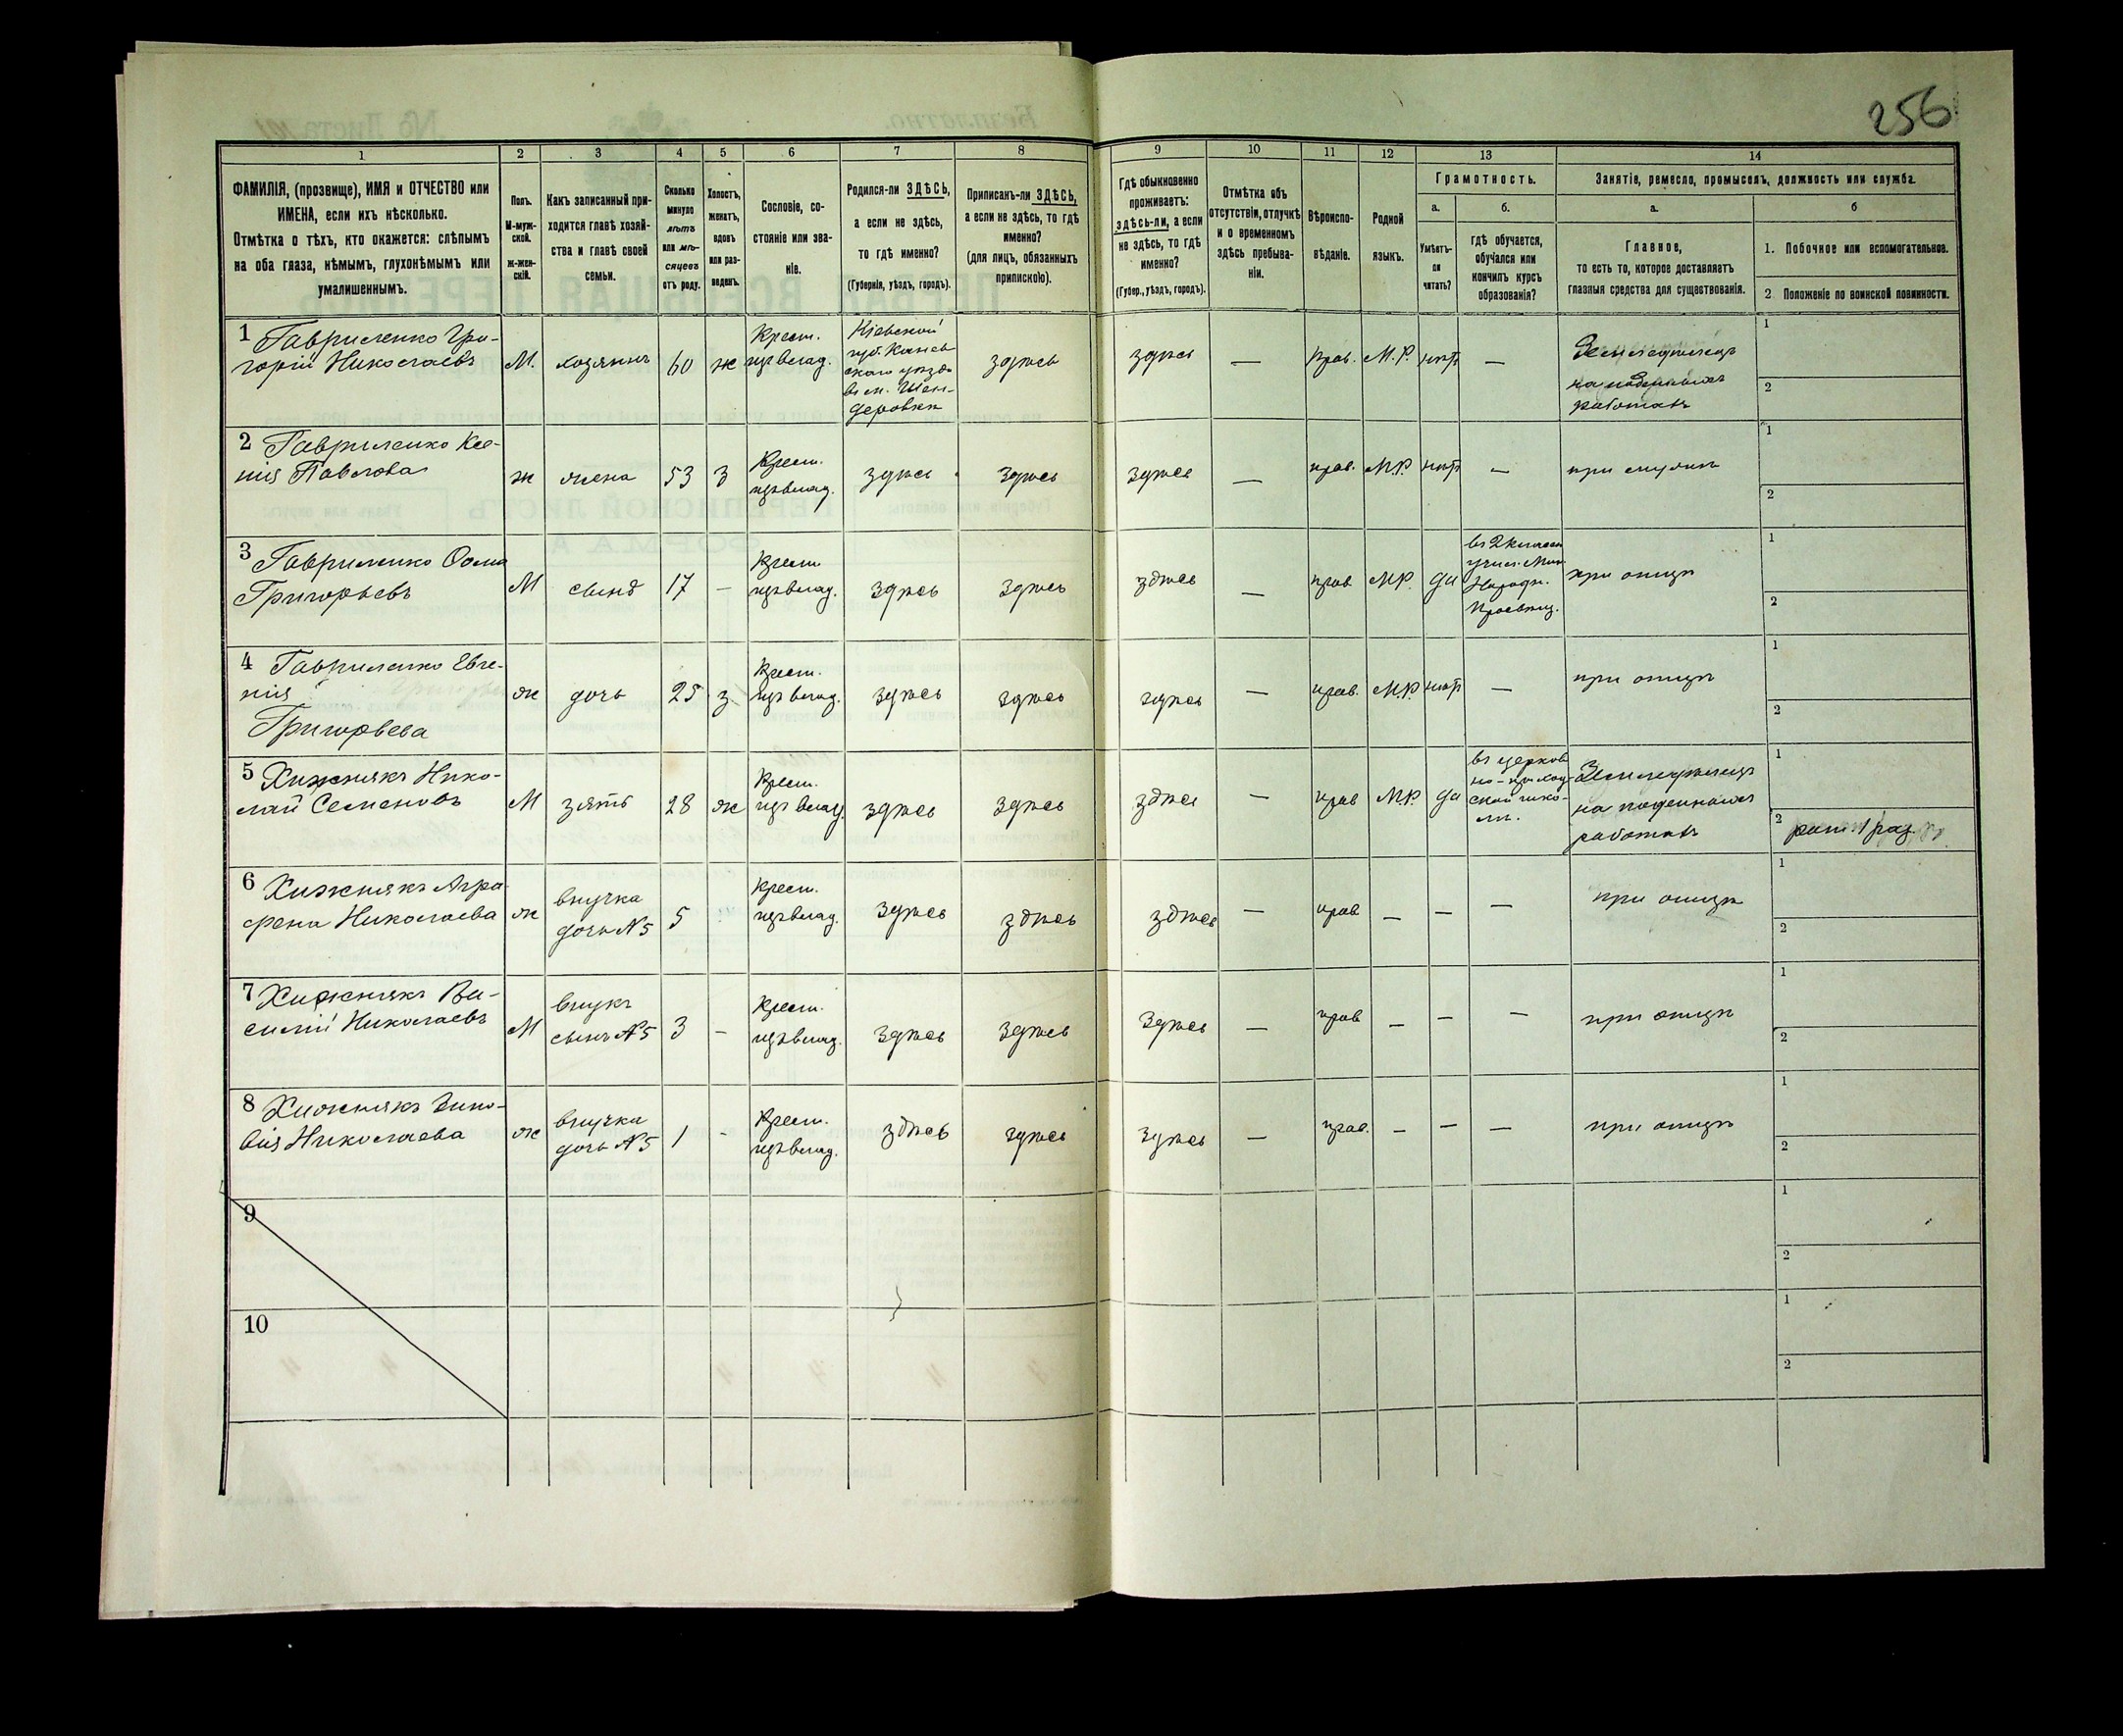 256
1 2 3 4 5 6 7 8 9 10 11 12 13 14
ФАМИЛІЯ, (прозвище), ИМЯ и ОТЧЕСТВО или
ИМЕНА, если ихъ нѣсколько.
Отмѣтка о тѣхъ, кто окажется: слѣпымъ
на оба глаза, нѣмымъ, глухонѣмымъ или
умалишеннымъ.
Полъ.
М-муж-
ской.
ж-жен-
скій.
Какъ записанный при-
ходится главѣ хозяй-
ства и главѣ своей
семьи.
Сколько
минуло
лѣтъ
или мѣ-
сяцевъ
отъ роду.
Холостъ,
женатъ,
вдовъ
или раз-
веденъ.
Сословіе, со-
стояніе или зва-
ніе.
Родился-ли ЗДѢСЬ,
а если не здѣсь,
то гдѣ именно?
(Губернія, уѣздъ, городъ).
Приписанъ-ли ЗДѢСЬ,
а если не здѣсь, то гдѣ
именно?
(для лицъ, обязанныхъ
припискою).
Гдѣ обыкновенно
проживаетъ:
здѣсь-ли, а если
не здѣсь, то гдѣ
именно?
(Губер., уѣздъ, городъ).
Отмѣтка объ
отсутствіи, отлучкѣ
и о временномъ
здѣсь пребыва-
ніи.
Вѣроиспо-
вѣданіе.
Родной
языкъ.
Грамотность.
а.
Умѣетъ-
ли
читать?
б.
гдѣ обучается,
обучался или
кончилъ курсъ
образованія?
Занятіе, ремесло, промыселъ, должность или служба.
а.
Главное,
то есть то, которое доставляетъ
главныя средства для существованія.
б
1. Побочное или вспомогательное.
2 Положеніе по воинской повинности.
1 Гавриленко Гри-
горій Николаевъ
М. хозяинъ 60 ж
Крест.
изъ влад.
Кіевской
губ. Канев-
скаго уѣзда
въ м. Шен-
деровкѣ
здѣсь здѣсь — прав. М.Р. нѣтъ —
Земледѣлецъ
на поденныхъ
работахъ
1
2
2 Гавриленко Ксе-
нія Павлова
ж жена 53 з
Крест.
изъ влад.
здѣсь здѣсь здѣсь — прав. М.Р. нѣтъ — при мужѣ
1
2
3 Гавриленко Ѳома
Григорьевъ
М сынъ 17 —
Крест
изъ влад.
здѣсь здѣсь здѣсь — прав М.Р. да
въ 2 класн
учил. Мин.
Народн.
Просвѣщ.
при отцѣ
1
2
4 Гавриленко Евге-
нія
Григорьева
ж дочь 25 з
Крест.
изъ влад.
здѣсь здѣсь здѣсь — прав. М.Р. нѣтъ — при отцѣ
1
2
5 Хижнякъ Нико-
лай Семеновъ
М зять 28 ж
Крест.
изъ влад.
здѣсь здѣсь здѣсь — прав М.Р. да
въ церков
но-приход-
ской шко-
лѣ.
Земледѣлецъ
на поденныхъ
работахъ
1
2 рат. 1 раз.
6 Хижнякъ Агра-
фена Николаева
ж
внучка
дочь №5
5
Крест.
изъ влад.
здѣсь здѣсь здѣсь — прав — — — при отцѣ
1
2
7 Хижнякъ Ва-
силій Николаевъ
М
внукъ
сынъ №5
3 —
Крест.
изъ влад.
здѣсь здѣсь здѣсь — прав — — — при отцѣ
1
2
8 Хижнякъ Зино-
вія Николаева
ж
внучка
дочь №5
1 -
Крест.
изъ влад.
здѣсь здѣсь здѣсь — прав. — — — при отцѣ
1
2
9
1
2
10
1
2